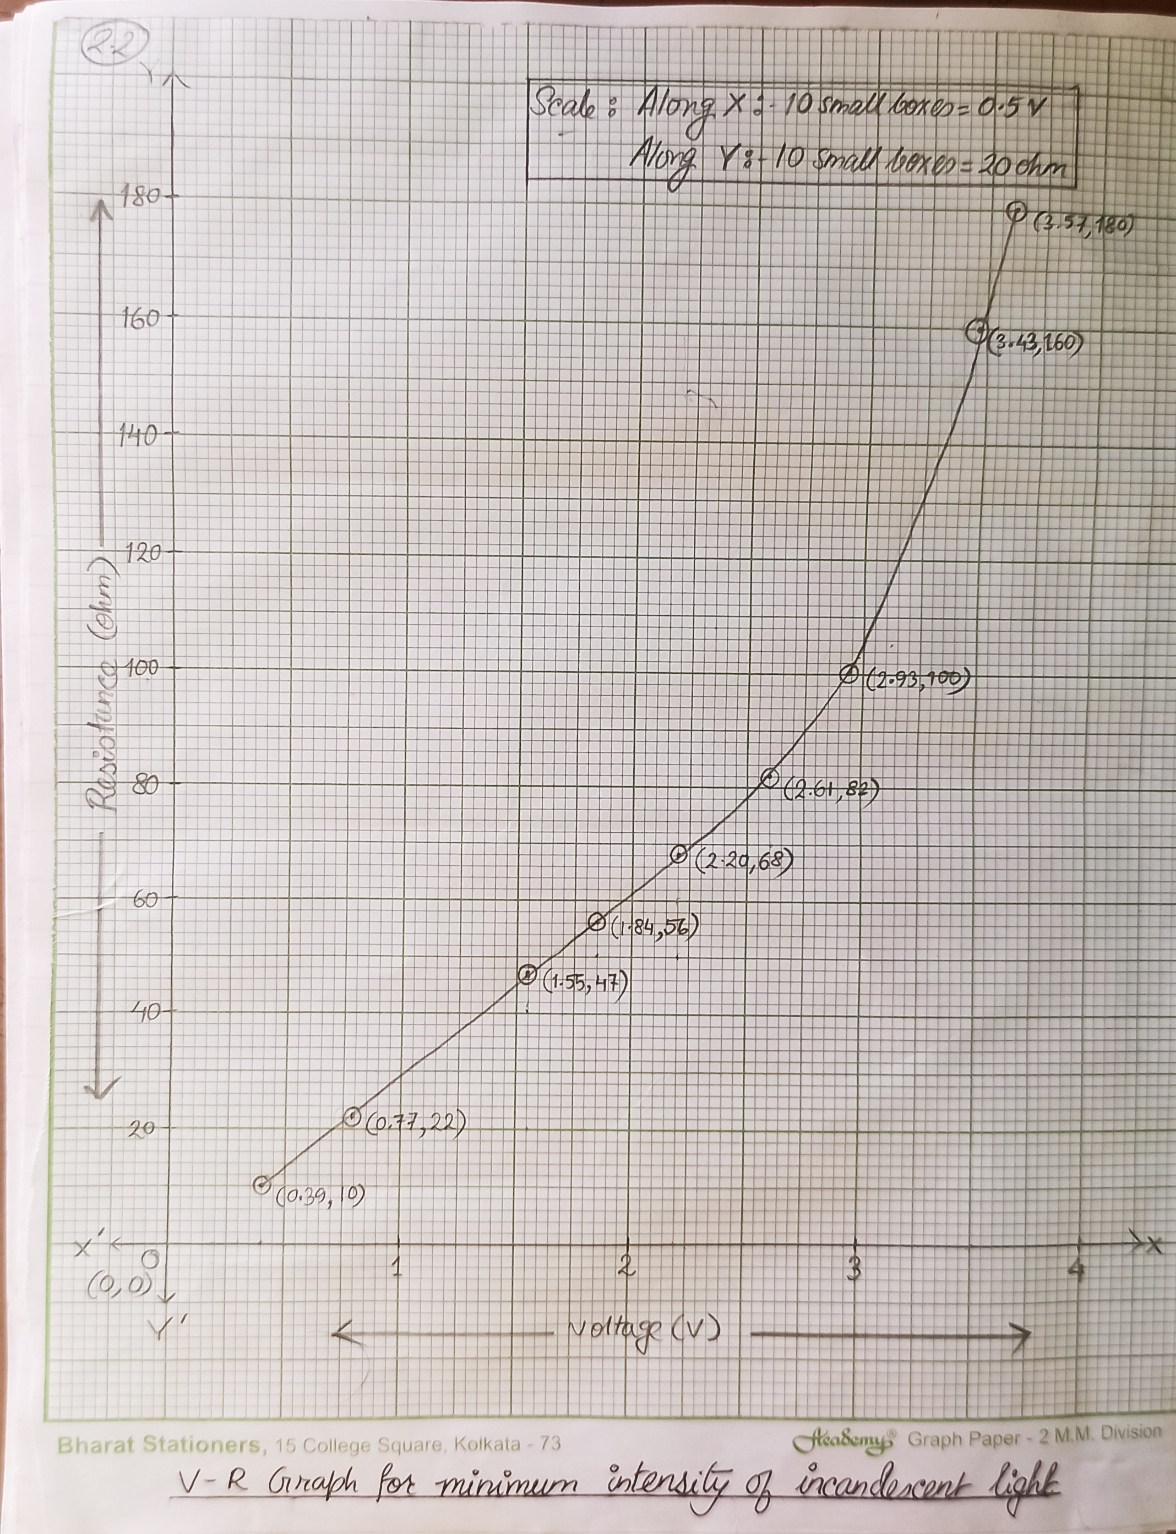 2.2
Y
Scale : Along X :- 10 small boxes = 0.5 V
Along Y :- 10 small boxes = 20 ohm
180
(3.57,180)
160
(3.43,160)
140
120
Resistance (ohm)
100
(2.93,100)
80
(2.61,82)
(2.20,68)
60
(1.84,56)
(1.55,47)
40
(0.77,22)
20
(0.39,10)
X'
O
1
2
3
4
X
(0,0)
Y'
Voltage (V)
Bharat Stationers, 15 College Square, Kolkata - 73
Academy® Graph Paper - 2 M.M. Division
V-R Graph for minimum intensity of incandescent light